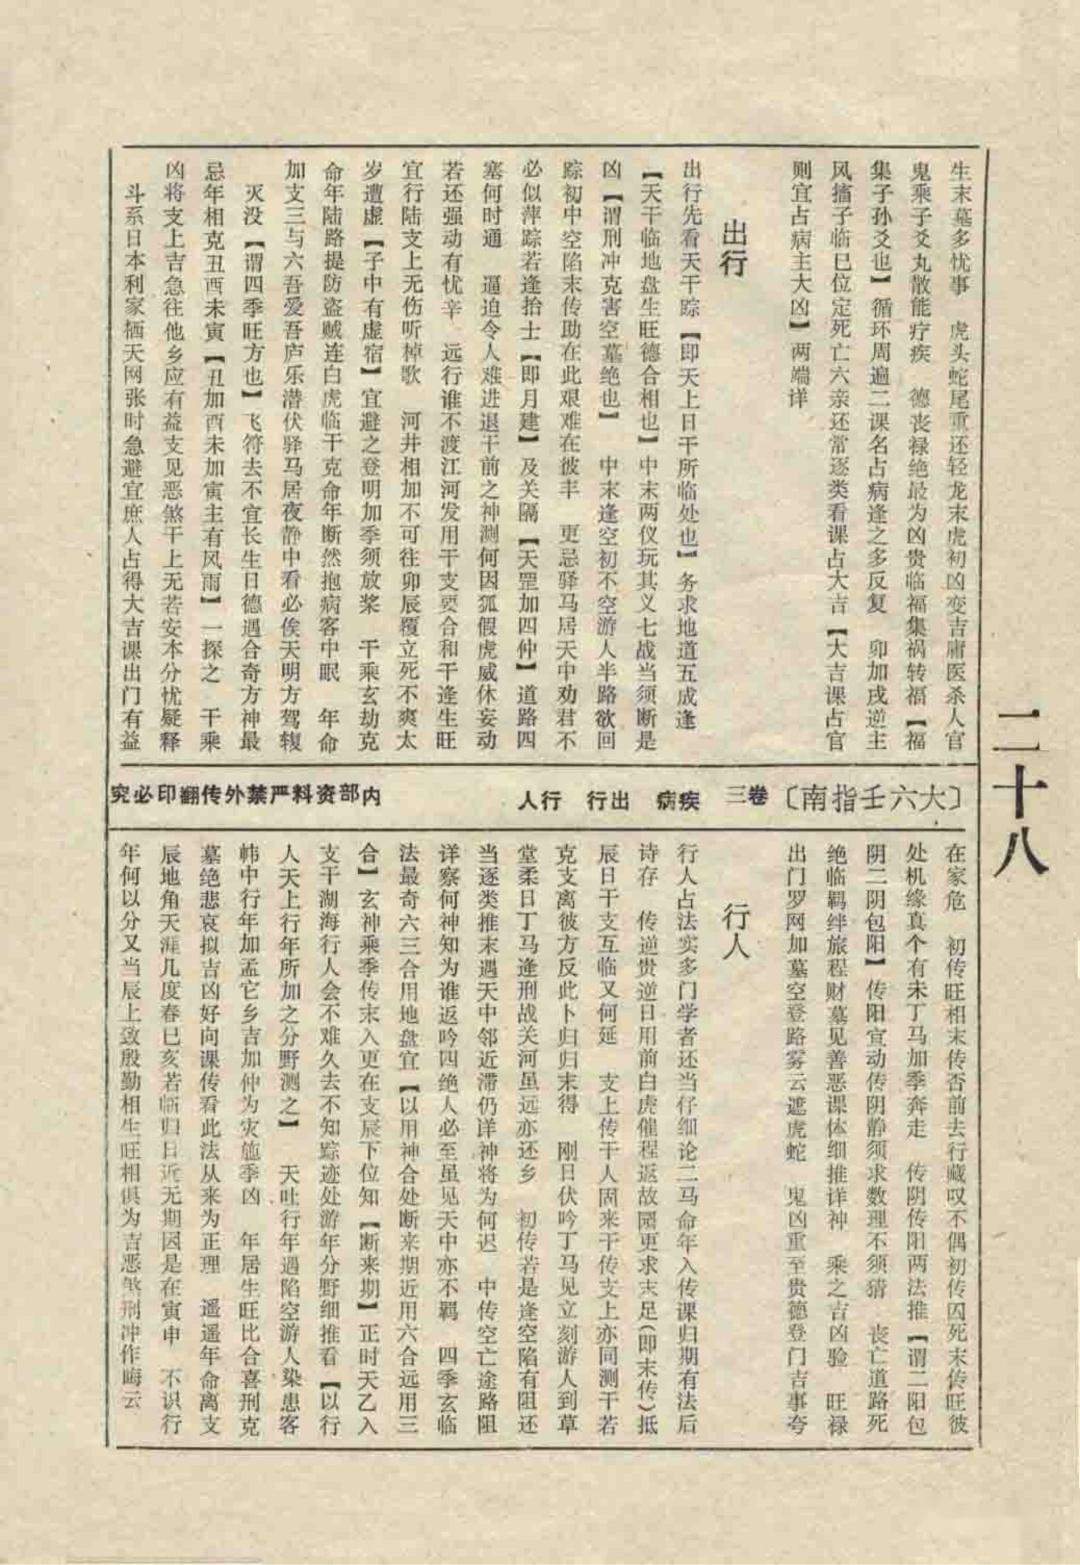 生末墓多忧事　虎头蛇尾重还轻龙末虎初凶变吉庸医杀人官
鬼乘子爻丸散能疗疾　德丧禄绝最为凶贵临福集祸转福【福
集子孙爻也】循环周遍二课名占病逢之多反复　卯加戌逆主
风搐子临巳位定死亡六亲还常逐类看课占大吉【大吉课占官
则宜占病主大凶】两端详
出行
出行先看天干踪【即天上日干所临处也】务求地道五成逢
【天干临地盘生旺德合相也】中末两仪玩其义七战当须断是
凶【谓刑冲克害空墓绝也】　中末逢空初不空游人半路欲回
踪初中空陷末传助在此艰难在彼丰　更忌驿马居天中劝君不
必似萍踪若逢抬士【即月建】及关隔【天罡加四仲】道路四
塞何时通　逼迫令人难进退干前之神测何因狐假虎威休妄动
若还强动有忧辛　远行谁不渡江河发用干支要合和干逢生旺
宜行陆支上无伤听棹歌　河井相加不可往卯辰覆立死不爽太
岁遭虚【子中有虚宿】宜避之登明加季须放桨　干乘玄劫克
命年陆路提防盗贼连白虎临干克命年断然抱病客中眠　年命
加支三与六吾爱吾庐乐潜伏驿马居夜静中看必俟天明方驾𫐓
灭没【谓四季旺方也】飞符去不宜长生日德遇合奇方神最
忌年相克丑酉未寅【丑加酉未加寅主有风雨】一探之　干乘
凶将支上吉急往他乡应有益支见恶煞干上无若安本分忧疑释
斗系日本利家栖天网张时急避宜庶人占得大吉课出门有益
〔大六壬指南〕卷三　疾病　出行　行人
内部资料严禁外传翻印必究
二十八
在家危　初传旺相末传否前去行藏叹不偶初传囚死末传旺彼
处机缘真个有未丁马加季奔走　传阴传阳两法推【谓二阳包
阴二阴包阳】传阳宜动传阴静须求数理不须猜　丧亡道路死
绝临羁绊旅程财墓见善恶课体细推详神　乘之吉凶验　旺禄
出门罗网加墓空登路雾云遮虎蛇　鬼凶重至贵德登门吉事夸
行人
行人占法实多门学者还当仔细论二马命年入传课归期有法后
诗存　传逆贵逆日用前白虎催程返故园更求末足(即末传)抵
辰日干支互临又何延　支上传干人固来干传支上亦同测干若
克支离彼方反此卜归归未得　刚日伏吟丁马见立刻游人到草
堂柔日丁马逢刑战关河虽远亦还乡　初传若是逢空陷有阻还
当逐类推末遇天中邻近滞仍详神将为何迟　中传空亡途路阻
详察何神知为谁返吟四绝人必至虽见天中亦不羁　四季玄临
法最奇六三合用地盘宜【以用神合处断来期近用六合远用三
合】玄神乘季传末入更在支辰下位知【断来期】正时天乙入
支干湖海行人会不难久去不知踪迹处游年分野细推看【以行
人天上行年所加之分野测之】　天吐行年遇陷空游人染患客
帏中行年加孟它乡吉加仲为灾施季凶　年居生旺比合喜刑克
墓绝悲哀拟吉凶好向课传看此法从来为正理　遥遥年命离支
辰地角天涯几度春巳亥若临归日近无期因是在寅申　不识行
年何以分又当辰上致殷勤相生旺相俱为吉恶煞刑冲作晦云